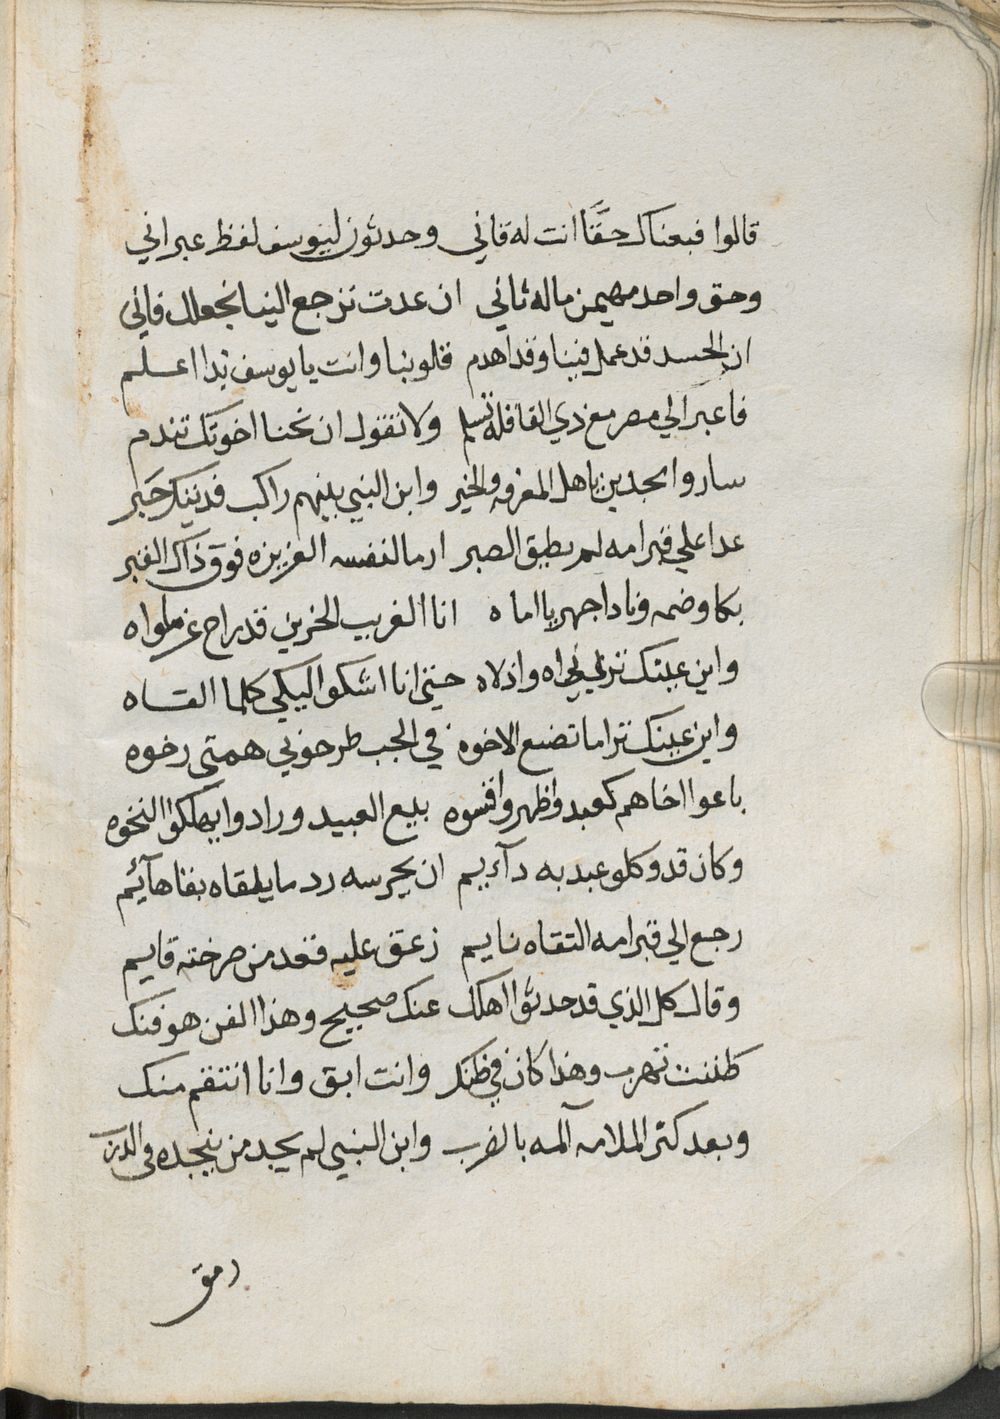 قالوا فبعناك حقًّا انت له قاني وحدثون ليوسف لفظ عبراني
وحق واحد مهيمن ماله ثاني ان عدت ترجع الينا نجعلك فاني
ان الحسد قد عمل فينا وقد اهدم قلوبنا وانت يا يوسف بذا اعلم
فاعبر الي مصر مع ذي القافله تسلم ولا تقول ان نحنا اخوتك تندم
ساروا مجدين باهل المعرفه والخير وابن النبي بينهم راكب
عدا علي قبر امه لم يطيق الصبر ارما لنفسه العزيزه فوق ذاك القبر
بكا وضمه ونادا جهر يا اماه انا الغريب الحزين قد راح
واين عينك تري واذلاه حتي انا اشكوا اليكي كلما القاه
واين عينك ترا ما تصنع الاخوه في الجب طرحوني همتي رخوه
باعوا اخاهم كعبد واظهروا قسوه بيع العبيد ورادوا يهلكوا النخوه
وكان قد وكلو عبد به دآءيم ان يحرسه رد ما يلقاه بقا هآئيم
رجع الي قبر امه التقاه نايم زعق عليه فقعد من صرخته قايم
وقال كل الذي قد حدثوا اهلك عنك صحيح وهذا الفن هو فنك
ظننت تهرب وهذا كان في ظنك وانت ابق وانا انتقم منك
وبعد كثر الملامه آلمه بالضرب وابن النبي لم يجد من ينجده في الدرب
رمق